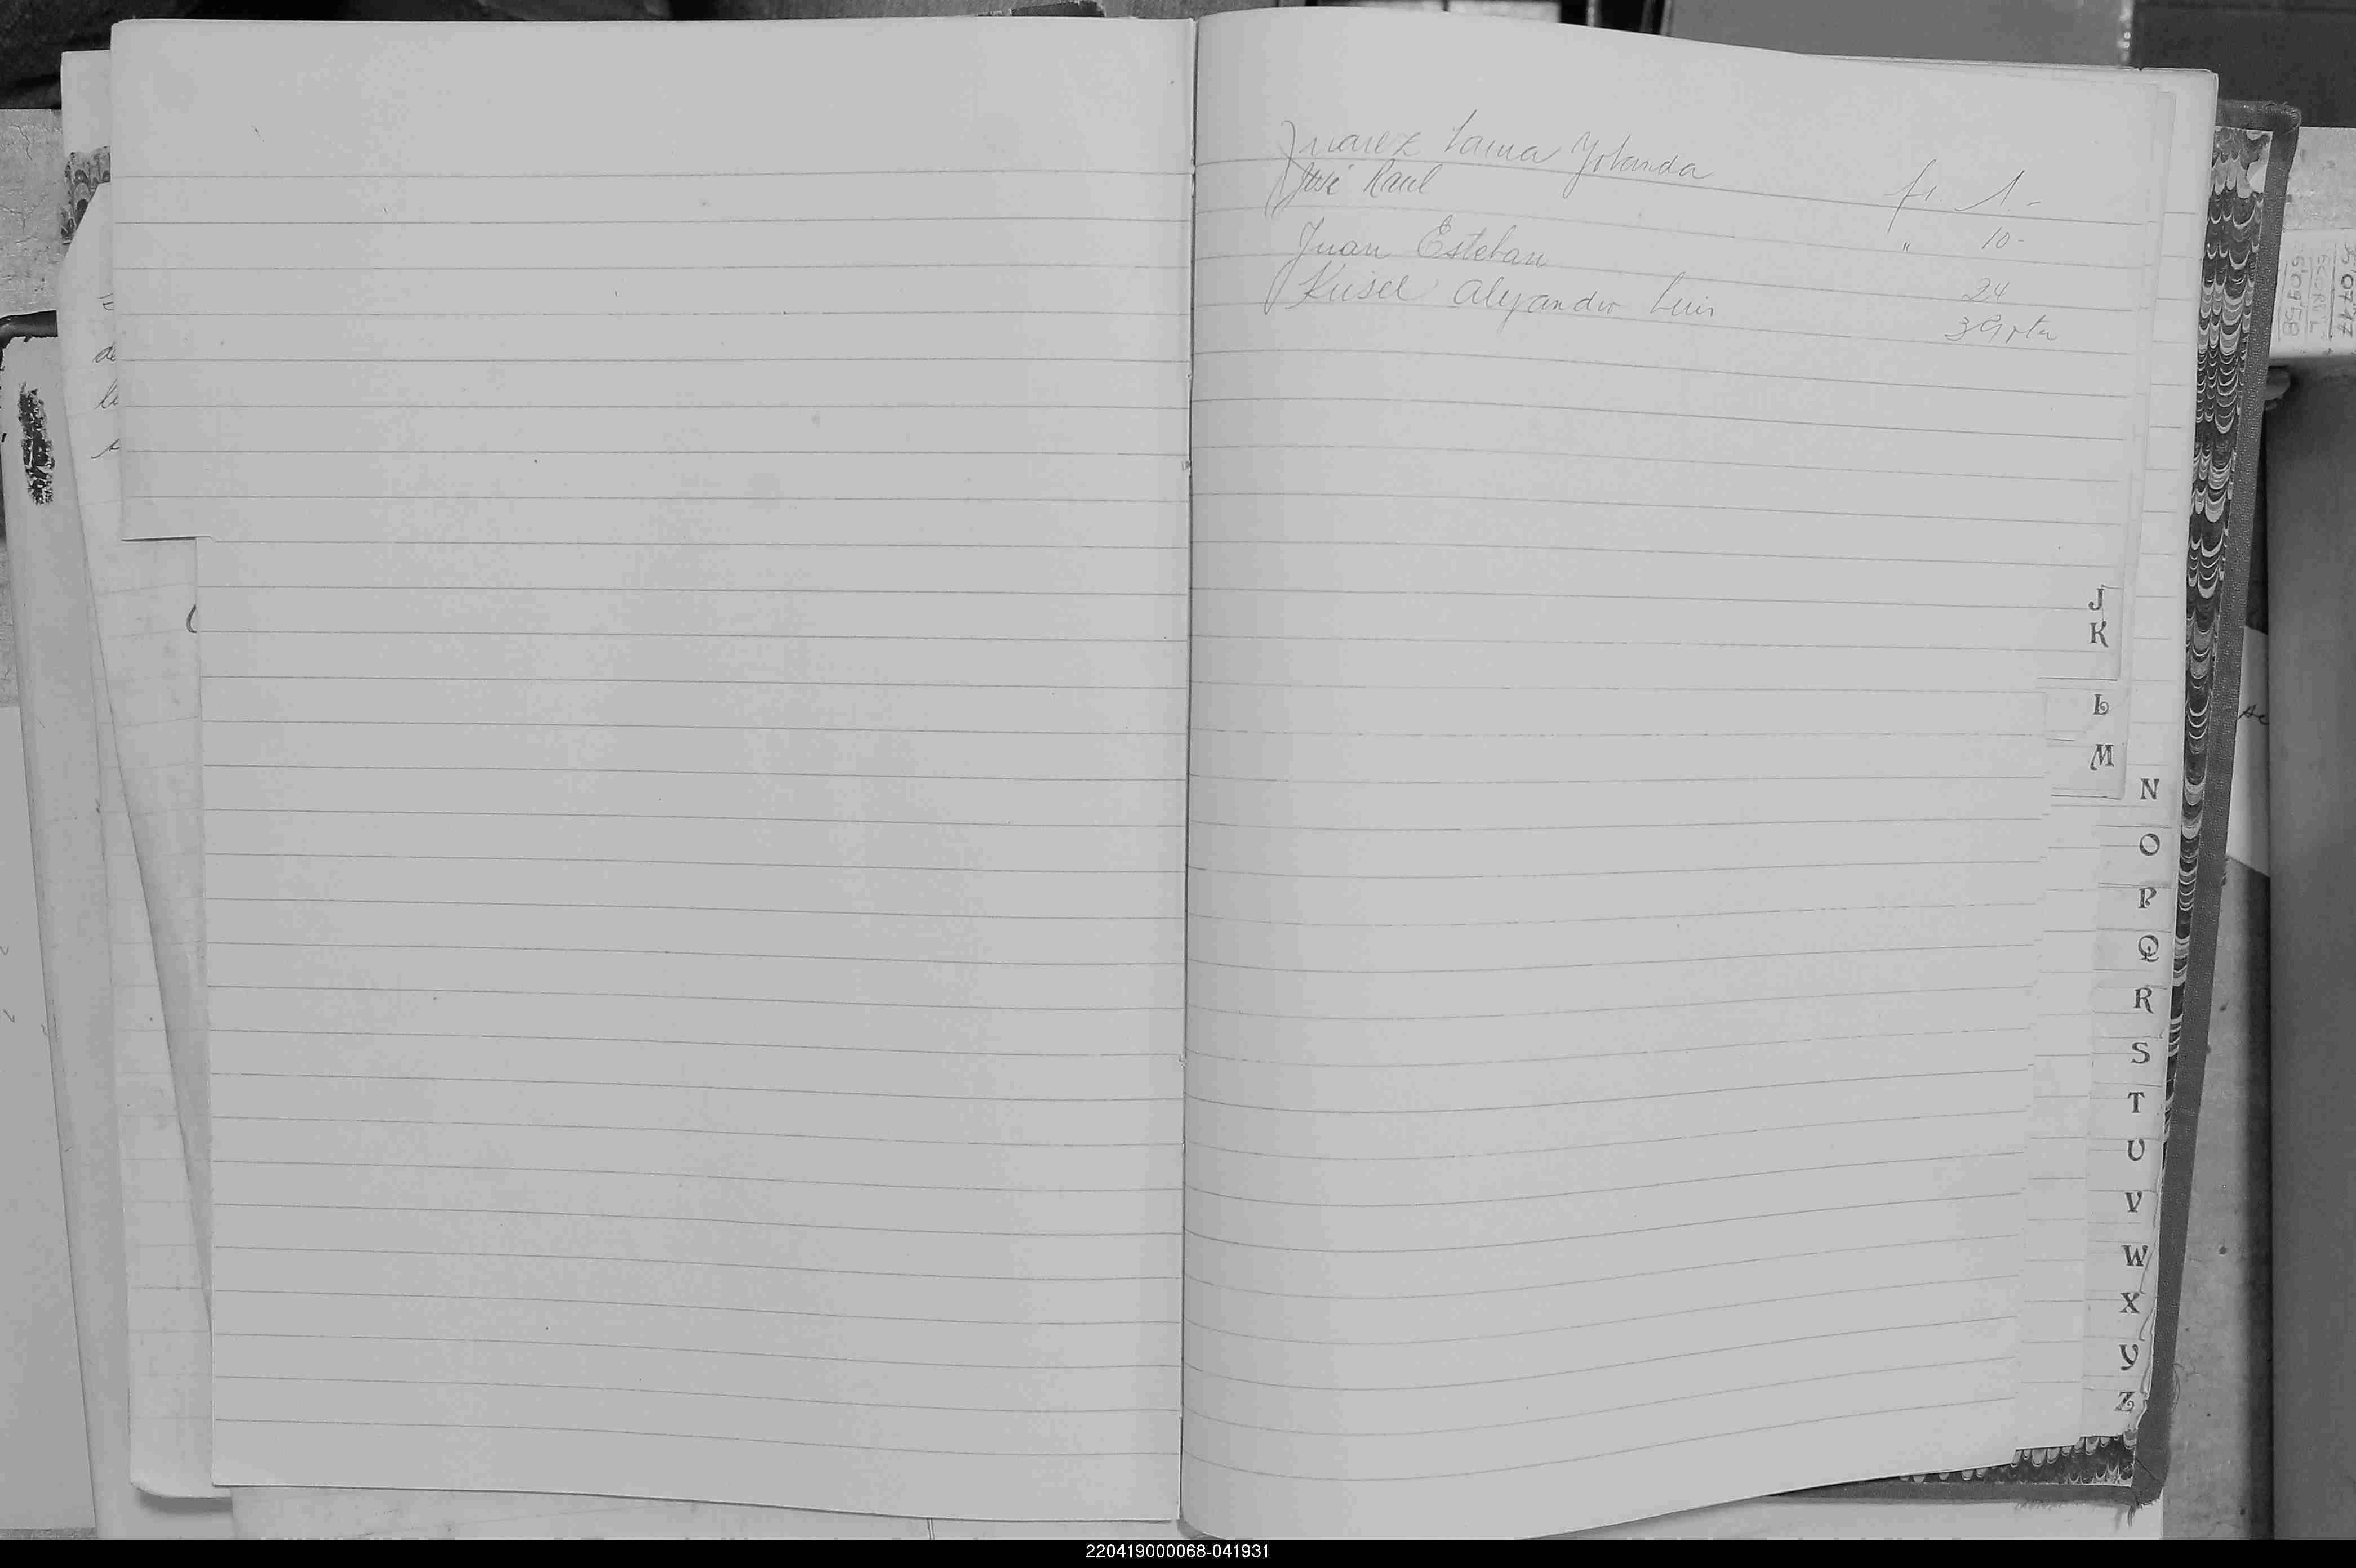 Juarez Laura Yolanda fs. 1.-
José Raul " 10-
Juan Esteban 24
Keisel Alejandro Luis 39 vta
J
K
L
M
N
O
P
Q
R
S
T
U
V
W
X
Y
Z
220419000068-041931